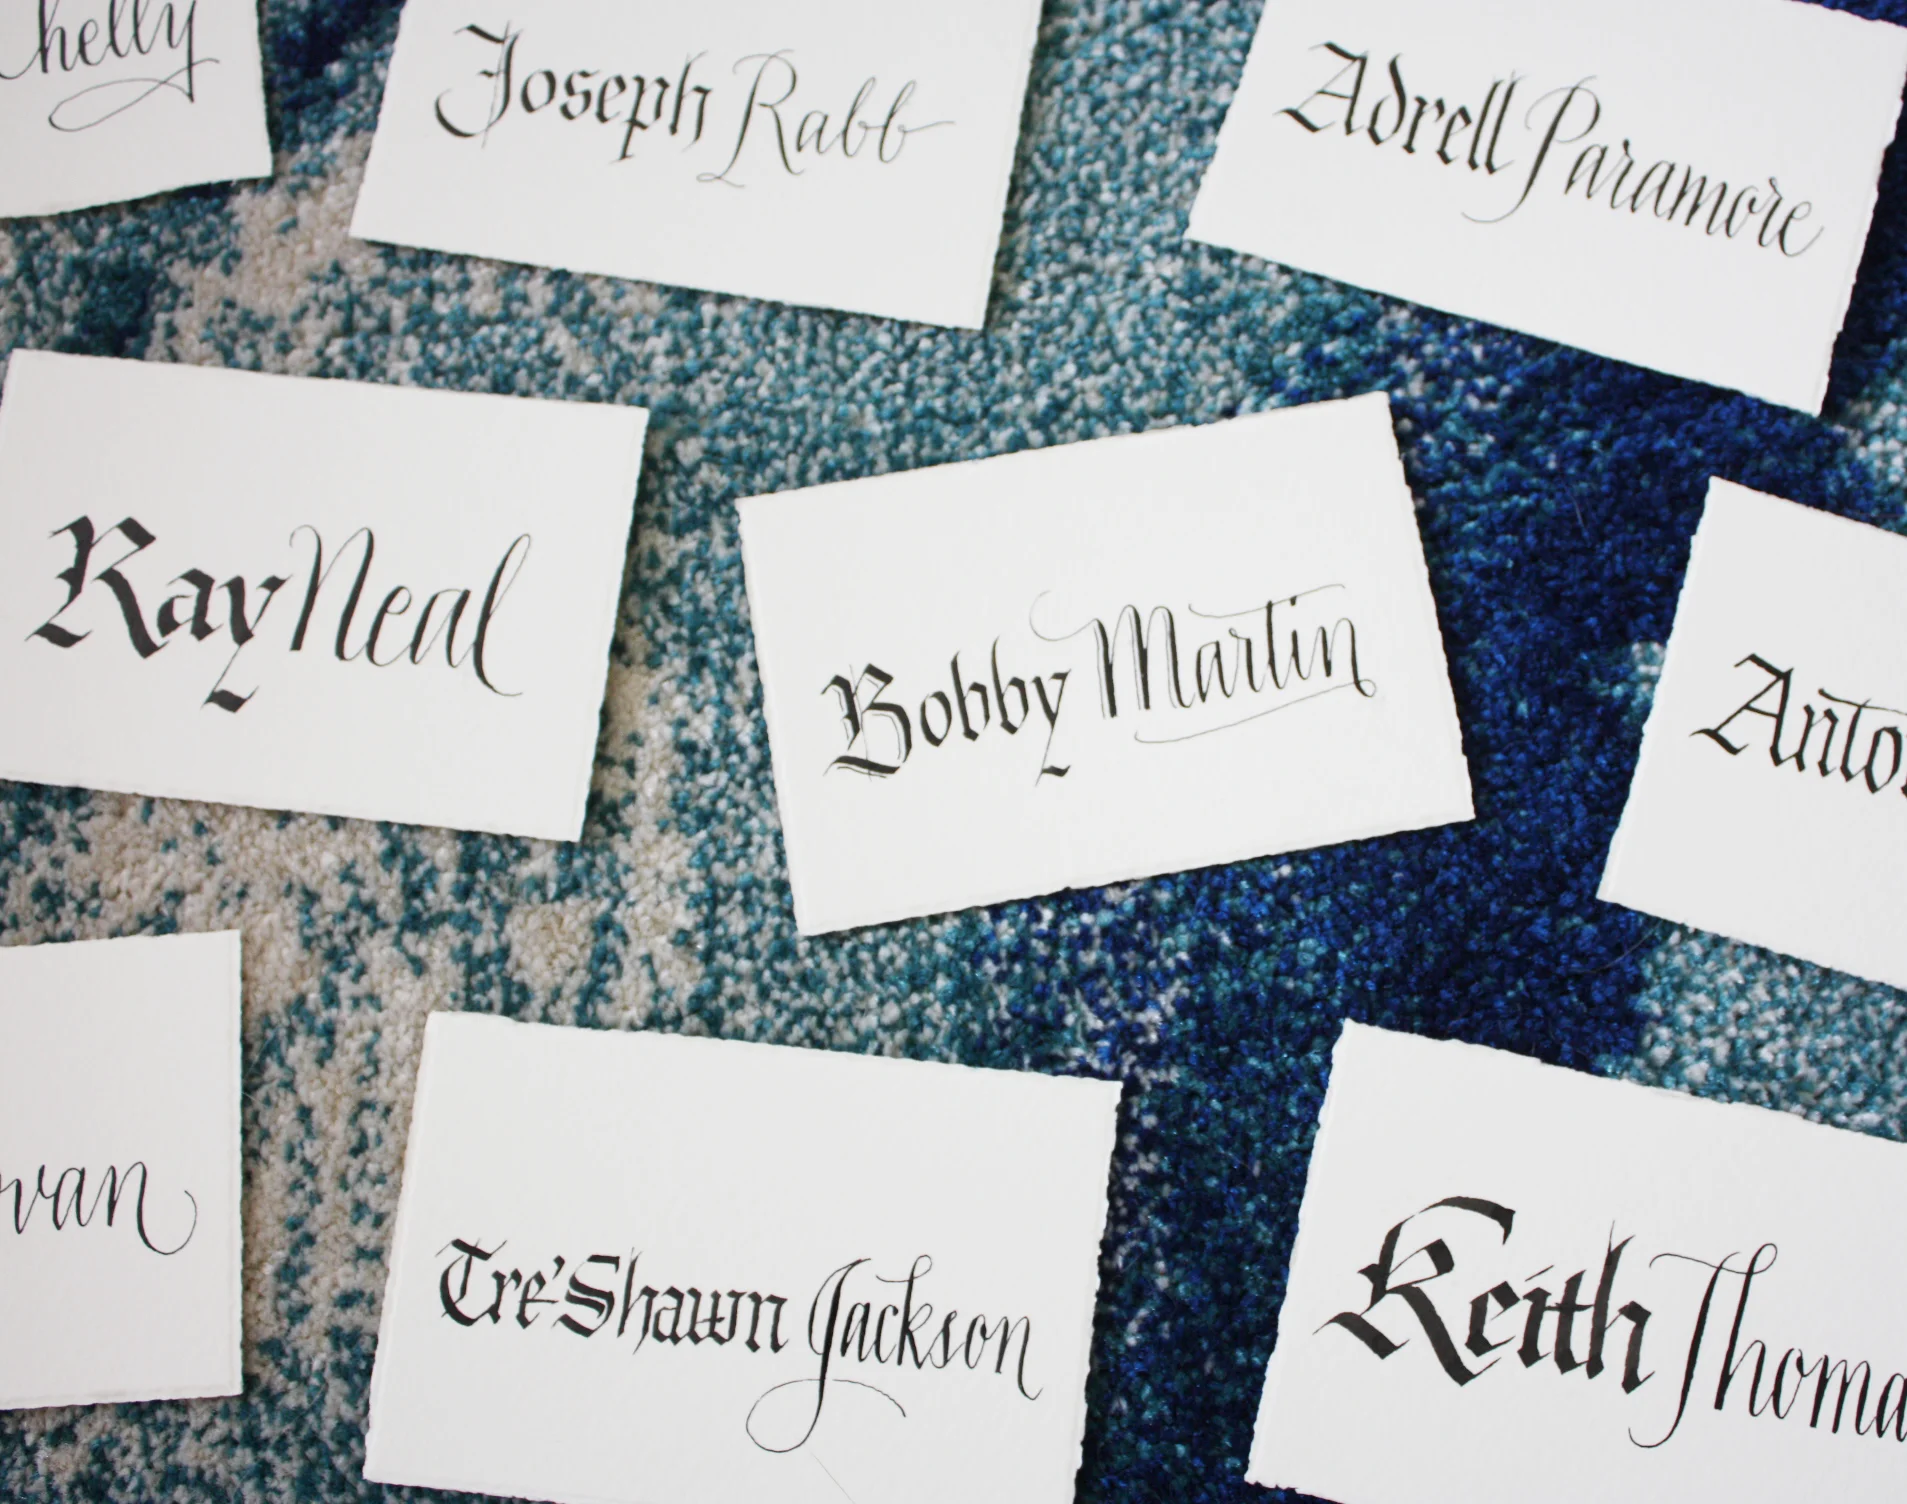 helly
Joseph Rabb
Adrell Paramore
Ray Neal
Bobby Martin
Anto
van
Tre'Shawn Jackson
Keith Thoma